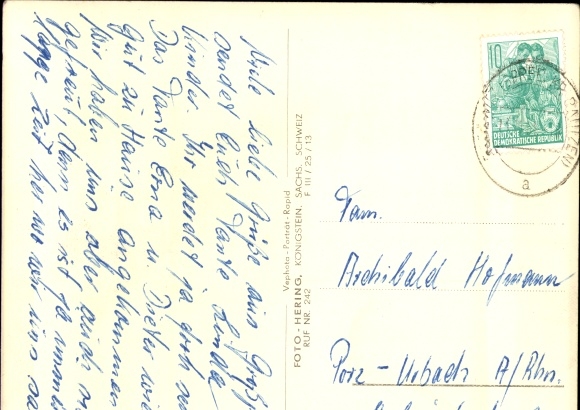 Viele liebe Grüße aus Groß
sendet Euch Tante Linda
Kinder. Ihr werdet ja doch
Das Tante Erna u. Dieter wie
gut zu Hause angekommen
Wir haben uns aber auch
gefreut, denn es ist ja immer
knappe Zeit her wo wir uns sa
Vephota - Porträt - Rapid
FOTO - HERING, KÖNIGSTEIN, SÄCHS. SCHWEIZ
RUF NR. 242 F III / 25 / 13
10
5
DEUTSCHE
DEMOKRATISCHE REPUBLIK
BAUTZEN)
a
Fam.
Archibald Hofmann
Porz - Urbach A/Rhn.